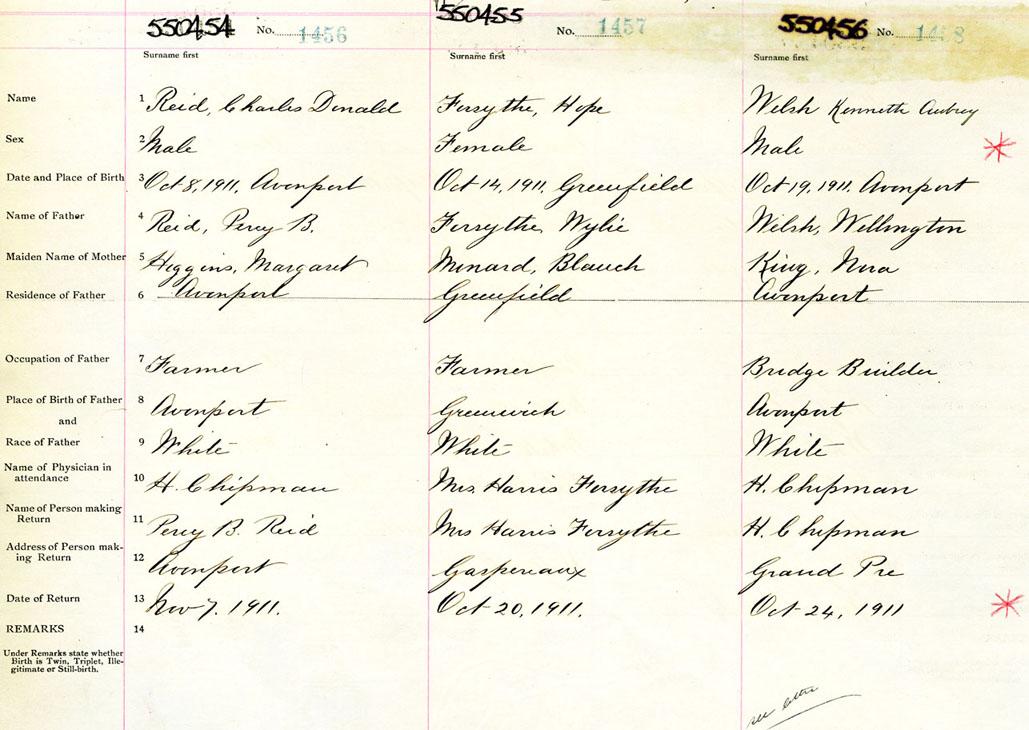 550454 No. 1456 550455 No. 1457 550456 No. 1458
Surname first Surname first Surname first
Name 1 Reid, Charles Donald Forsythe, Hope Welsh Kenneth Aubrey
Sex 2 Male Female Male
Date and Place of Birth 3 Oct 8, 1911, Avonport Oct 14, 1911, Greenfield Oct 19, 1911, Avonport
Name of Father 4 Reid, Percy B. Forsythe, Wylie Welsh, Wellington
Maiden Name of Mother 5 Higgins, Margaret Minard, Blanch King, Nora
Residence of Father 6 Avonport Greenfield Avonport
Occupation of Father 7 Farmer Farmer Bridge Builder
Place of Birth of Father 8 Avonport Greenwich Avonport
and
Race of Father 9 White White White
Name of Physician in
attendance 10 H. Chipman Mrs. Harris Forsythe H. Chipman
Name of Person making
Return 11 Percy B. Reid Mrs Harris Forsythe H. Chipman
Address of Person mak-
ing Return 12 Avonport Gaspereaux Grand Pre
Date of Return 13 Nov 7, 1911. Oct 20, 1911. Oct 24, 1911
REMARKS 14
Under Remarks state whether
Birth is Twin, Triplet, Ille-
gitimate or Still-birth.
see letter